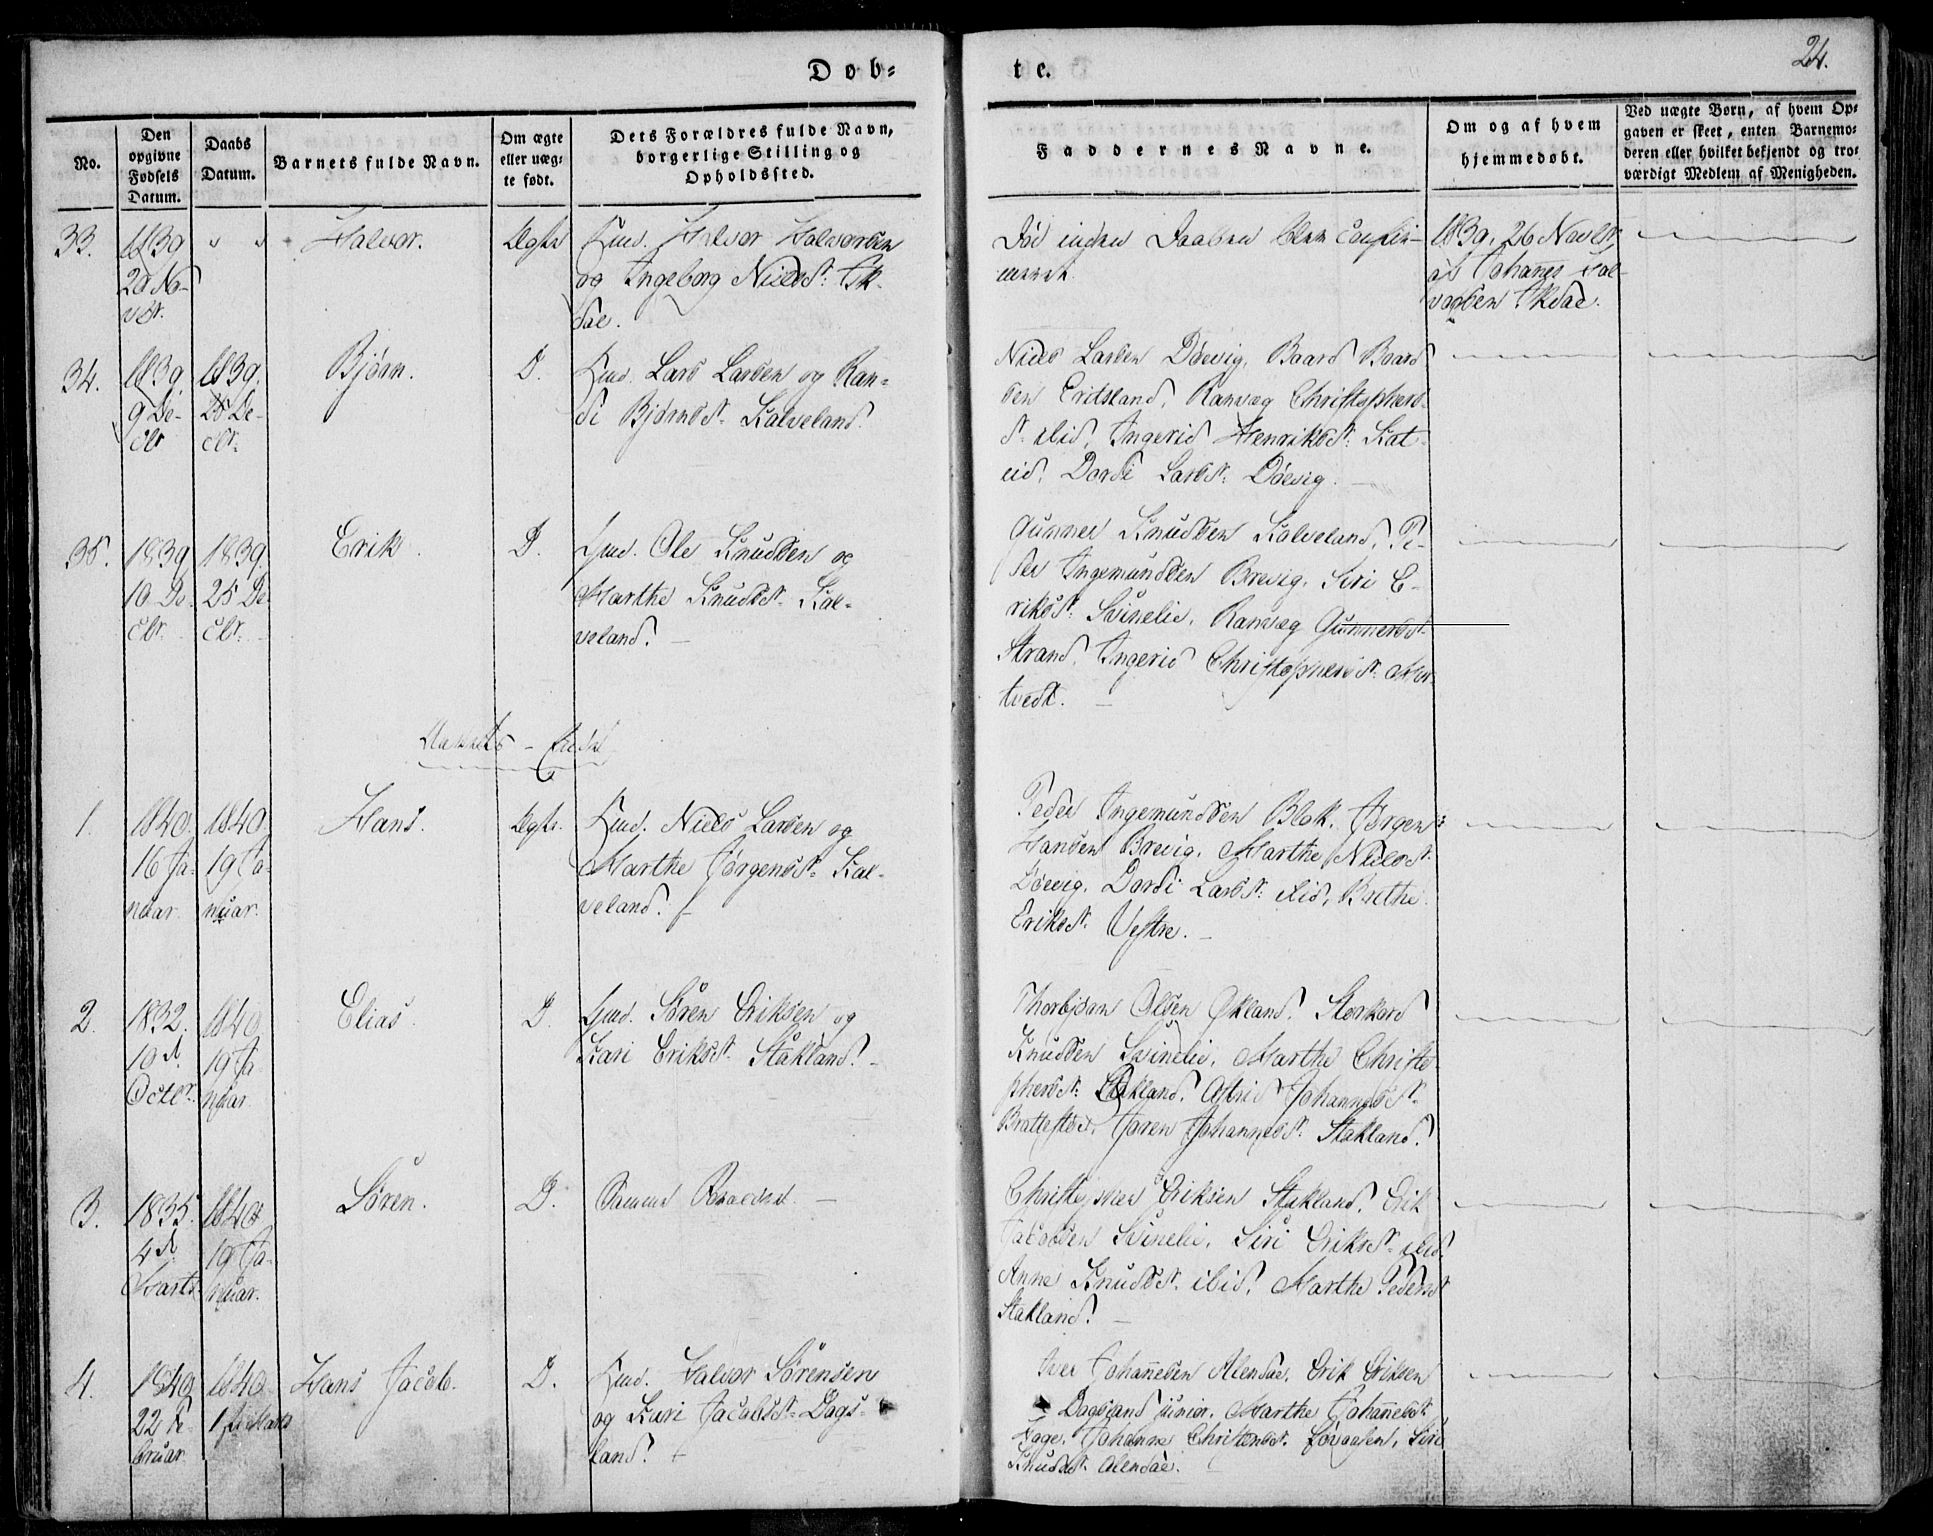 24.
Døb=
te.
No.
Den
opgivne
Fødsels
Datum.
Daabs
Datum.
Barnets fulde Navn.
Om ægte
eller uæg=
te født.
Dets Forældres fulde Navn,
borgerlige Stilling og
Opholdssted.
Faddernes Navne.
Om og af hvem
hjemmedøbt.
Ved uægte Børn, af hvem Op=
gaven er skeet, enten Barnemo=
deren eller hvilket bekjendt og tro=
værdigt Medlem af Menigheden.
33.
1839
20 No-
vbr.
" "
Halvor.
Ægte
Gmd. Halvor Halvorsen
og Ingeborg Nielsd:
dal.
Død inden Daaben blev
1839. 26 Novbr,
af Johanes Hal-
vorsen
34.
1839
9 De-
cbr
1839.
25 De-
cbr.
Bjørn.
D.
Gmd. Lars Larsen og Ran-
di Bjørnsd. Kalveland.
Niels Larsen Döevig, Baard Baard
sen Eritsland, Ranveg Christophers-
d. ibid, Ingerid Henriksd: Kat-
eid, Dordi Larsd: Döevig.
35.
1839
10 De-
cbr.
1839.
25 De
cbr.
Erik.
D.
Gmd. Ole Knudsen og
Marthe Knudsd. Kal-
veland.
Gunner Knudsen Kalveland, Pe-
der Ingemundsen Brevig, Siri E-
riksd: Svinelie, Ranveg Gunnersd.
Strand, Ingerid Christophersd:
tvedt.
1.
1840.
16 Ja-
nuar.
1840.
19 Ja-
nuar.
Hans.
Ægte.
Gmd. Niels Larsen og
Marthe Jørgensd. Kal-
veland.
Peder Ingemundsen Blok, Jørgen
Hansen Brevig, Marthe Nielsd.
Döevig, Dordi Larsd: ibid, Brithe
Eriksd. Vestre.
2.
1832.
10 d.
Octbr.
1840
19 Ja
nuar
Elias.
D.
Gmd. Søren Eriksen og
Kari Eriksd. Stakland.
Thorbjørn Olsen Økland, Storkord
Knudsen Svinelie, Marthe Christo-
phersd: Stakland, Astrid Johannesd.
Bratteflaad, Joren Johannesd. Stakland.
3.
1835.
4 d.
Marts.
1840
19 Ja-
nuar.
Søren.
D.
Samme Forældre.
Christopher Eriksen Stakland, Erik
Jacobsen Svinelie, Siri Eriksd. ibid,
Anne Knudsd. ibid, Marthe Pedersd
Stakland.
4.
1840
22 Fe
bruar.
1840.
1ste Marts
Hans Jacob.
D.
Gmd. Halvor Sørensen
og Kari Jacobsd. Dags-
land.
Iver Johannesen Alendal, Erik Eriksen
Dagsland junior, Marthe Johannesd.
Hage, Johanne Christensd. Løvaasen, Siri
Knudsd. Alendal.